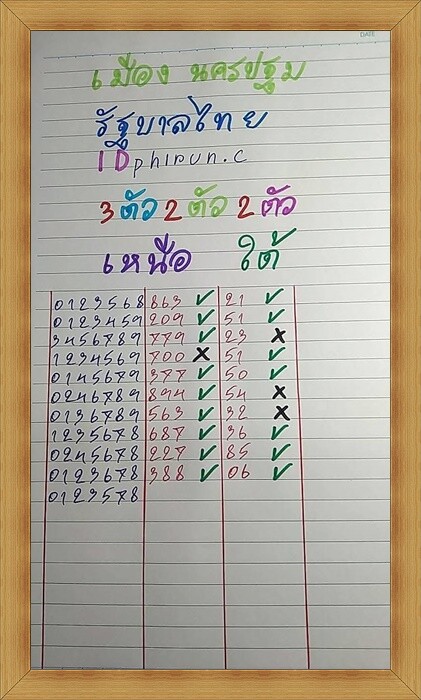 DATE
เมือง นครปฐม
รัฐบาลไทย
IDphirun.c
3 ตัว 2 ตัว 2 ตัว
เหนือ ใต้
0123568 863 ✓ 21 ✓
0123459 209 ✓ 51 ✓
3456789 779 ✓ 23 X
1234569 700 X 51 ✓
0145679 377 ✓ 50 ✓
0246789 894 ✓ 54 X
0136789 563 ✓ 32 X
1235678 687 ✓ 36 ✓
0245678 227 ✓ 85 ✓
0123678 388 ✓ 06 ✓
0123578